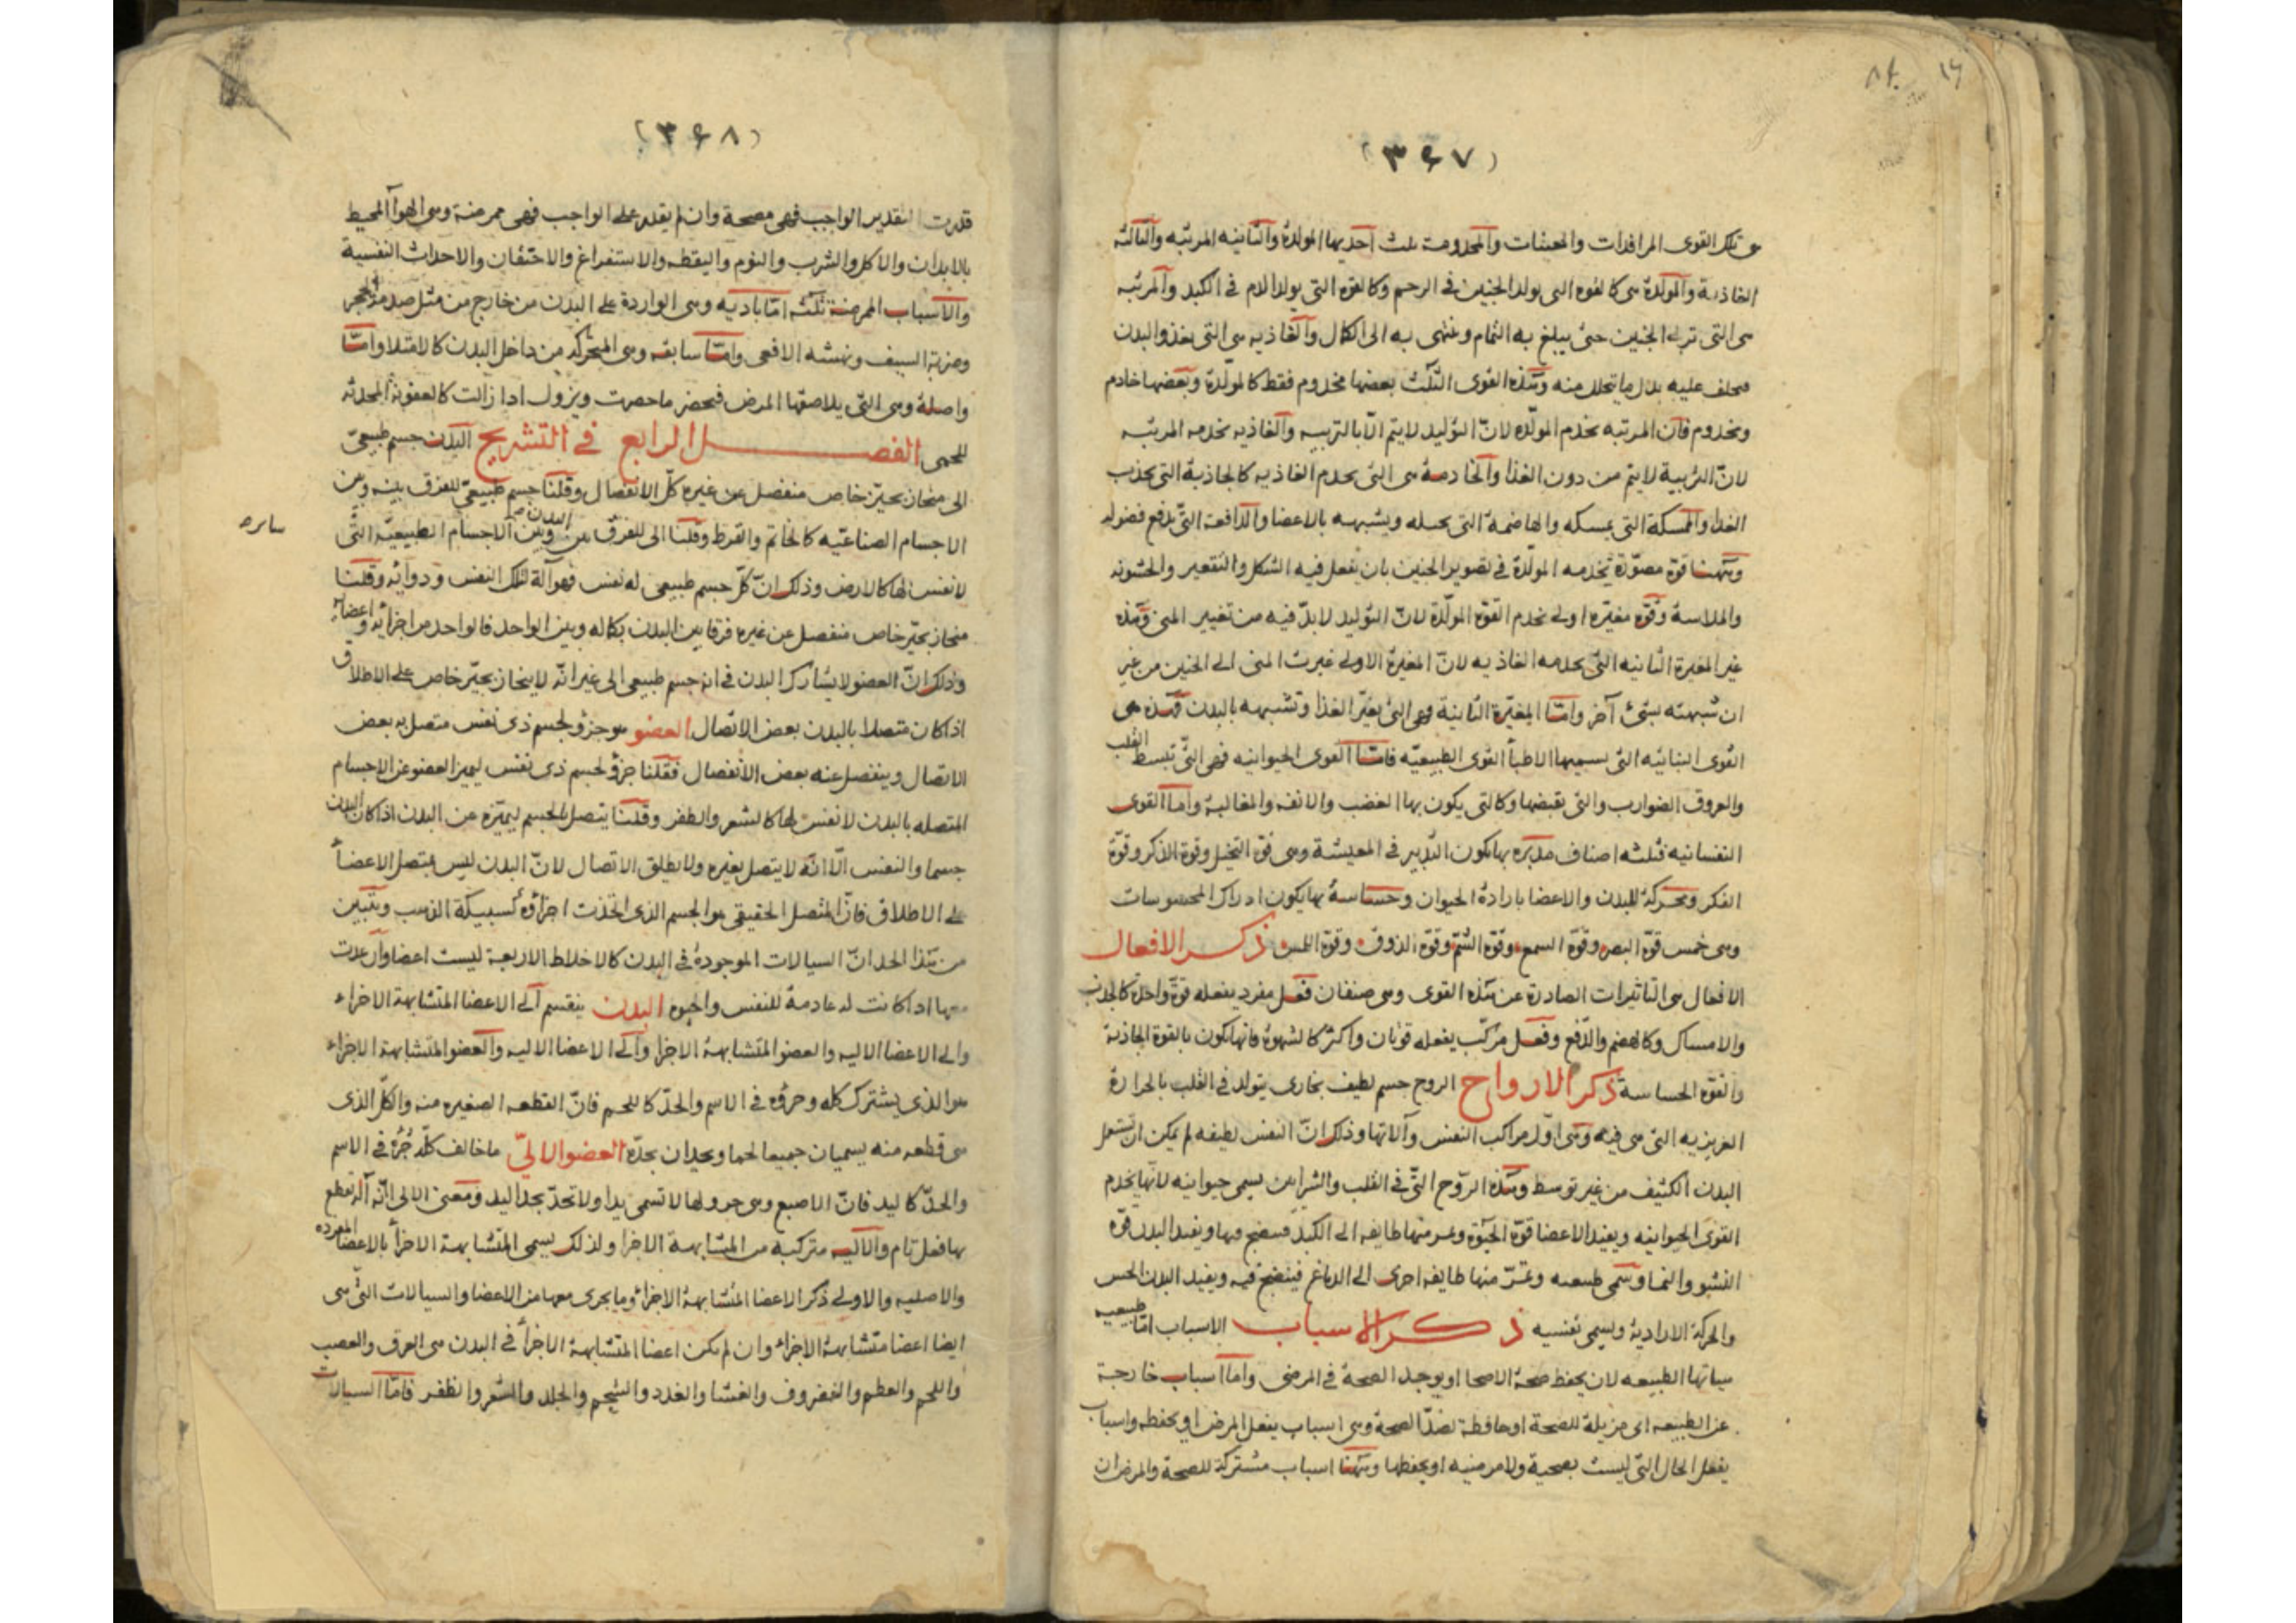 (٣٤٧)
تلك القوى المرافدات والمعينات والمخدومة ثلث احديها المولدة والثانيه المربّيه والثالثه
الغاذية والمولّدة هى كالقوه التى يولد الجنين فى الرحم وكالقوه التى يولد الدم فى الكبد والمربّيه
هى التى تربى الجنين حتى يبلغ به التمام وينتهى به الى الكمال والغاذيه هى التى يغذو البدن
فيخلف عليه بدل ما يتحلل منه وهذه القوى الثلث بعضها مخدوم فقط كالمولّدة وبعضها خادم
ومخدوم فان المربيه يخدم المولّده لانّ التوليد لا يتم الّا بالتربيه والغاذيه يخدمه المربيه
لانّ التربية لا يتم من دون الغذا والخادمة هى التى يخدم الغاذيه كالجاذبة التى يجذب
الغذا والممسكة التى يمسكه والهاضمة التى يحيله ويشبهه بالاعضا والدافعة التى يدفع فضوله
وههنا قوة مصوّرة يخدمه المولّدة فى تصوير الجنين بان يفعل فيه الشكل والتقعير والخشونه
والملاسة وقوّه مغيّره اولى يخدم القوّه المولّدة لانّ التوليد لابدّ فيه من تغيير المنى وهذه
غير المغيرة الثانيه التى يخدمه الغاذيه لانّ المغيرة الاولى غيرت المنى الى الجنين من غير
ان شبهته بشئ آخر وامّا المغيّرة الثانية فهى التى يغيّر الغذا وتشبهه بالبدن فهذه هى
القوى النباتيه التى يسميها الاطبّا القوى الطبيعيّه فامّا القوى الحيوانيه فهى التى تبسط القلب
والعروق الضوارب والتى يقبضها وكالتى يكون بها الغضب والانفه والمغالبة وامّا القوى
النفسانيه فثلثه اصناف مدبّره بها يكون التدبير فى المعيشة وهى قوة التخيل وقوة الذكر وقوّة
الفكر ومحركة للبدن والاعضا بارادة الحيوان وحساسة بها يكون ادراك المحسوسات
وهى خمس قوّة البصر وقوّة السمع وقوّة الشم وقوّة الذوق وقوّة اللمس ذكر الافعال
الافعال هى التاثيرات الصادرة عن هذه القوى وهى صنفان فعل مفرد يفعله قوّة واحدة كالجذب
والامساك وكالهضم والدّفع وفعل مركّب يفعله قوتان واكثر كالشهوة فانها يكون بالقوة الجاذبة
والقوّه الحساسة ذكر الارواح الروح جسم لطيف بخارى يتولد فى القلب بالحرارة
الغريزيه التى هى فيه وهى اوّل مراكب النفس وآلاتها وذلك انّ النفس لطيفه لم يمكن ان تستعمل
البدن الكثيف من غير توسط وهذه الرّوح التى فى القلب والشرايين يسمى حيوانيه لانّها يخدم
القوى الحيوانيه ويفيد الاعضا قوّة الحيوة ويمر منها طايفه الى الكبد فينضج فيها ويفيد البدن قوّة
النشو والنما ويسمى طبيعيه ويمرّ منها طايفه اخرى الى الدماغ فينضج فيه ويفيد البدن الحس
والحركة الارادية ويسمى نفسيه ذكر الاسباب الاسباب امّا طبيعيه
هياتها الطبيعه لان يحفظ صحة الاصحا او يوجد الصحة فى المرضى وامّا اسباب خارجة
عن الطبيعه اى مزيلة للصحة او حافظة لضدّ الصحة وهى اسباب يفعل المرض او يحفظه واسباب
يفعل الحال التى ليست بصحية ولا مرضيه او يحفظها وههنا اسباب مشتركة للصحة والمرض ان
(٣٤٨)
قدرت التقدير الواجب فهى مصحة وان لم يقدر على الواجب فهى ممرضة وهى الهوآ المحيط
بالابدان والاكل والشرب والنوم واليقظه والاستفراغ والاحتقان والاحداث النفسية
والاسباب الممرضة ثلثه امّا باديه وهى الواردة على البدن من خارج من مثل صدمة الحجر
وضربة السيف ونهشه الافعى وامّا سابقه وهى المتحركه من داخل البدن كالامتلا وامّا
واصلة وهى التى يلاصقها المرض فيحضر ما حضرت ويزول اذا زالت كالعفونة المحدثه
للحمى الفصل الرابع فى التشريح البدن جسم طبيعىّ
الى منحاز بحيّز خاص منفصل عن غيره كلّ الانفصال وقلنا جسم طبيعىّ للفرق بينه وبين
الاجسام الصناعيّه كالخاتم والقرط وقلنا الى للفرق بين البدن وبين الاجسام الطبيعيّه التى
سايره
لا نفس لها كالارض وذلك انّ كلّ جسم طبيعى له نفس فهو آلة لتلك النفس ودوائه وقلنا
منحاز بحيّز خاص منفصل عن غيره فرقا بين البدن بكماله وبين الواحد فالواحد من اجزائه واعضائه
وذلك انّ العضو لا يشارك البدن فى انه جسم طبيعى الى غير انّه لا ينحاز بحيّز خاص على الاطلاق
اذا كان متصلا بالبدن بعض الاتصال العضو هو جزو لجسم ذى نفس متصل به بعض
الاتصال وينفصل عنه بعض الانفصال فقلنا جزو لجسم ذى نفس ليميز العضو عن الاجسام
المتصله بالبدن لا نفس لها كالشعر والظفر وقلنا يتصل بالجسم ليميّزه عن البدن اذا كان البدن
جسما والنفس الّا انّه لا يتصل بغيره ولا يطلق الاتصال لانّ البدن ليس بمتصل الاعضآ
على الاطلاق فانّ المتصل الحقيقى هو الجسم الذى اتخذت اجزاؤه كسبيكة الذهب ويتبين
من هذا الحد انّ السيالات الموجودة فى البدن كالاخلاط الاربعة ليست اعضا وان عدت
منها اذ كانت له عادمة للنفس والحيوة البدن ينقسم الى الاعضا المتشابهة الاجزاء
والى الاعضا الاليه والعضو المتشابهة الاجزا والى الاعضا الاليه والعضو المتشابهة الاجزاء
هو الذى يشترك كله وجزؤه فى الاسم والحدّ كاللحم فانّ القطعه الصغيره منه والكلّ الذى
هى قطعه منه يسميان جميعا لحما ويحدان بحدّه العضو الالىّ ما خالف كلّه جزؤه فى الاسم
والحدّ كاليد فانّ الاصبع وهى جزو لها لا تسمى يدا ولا تحدّ بحد اليد ومعنى الالى انّه آلة تقطع
بها فعل تام والآليه متركبه من المتشابهة الاجزا ولذلك يسمى المتشابهة الاجزا بالاعضا المفرده
والاصليه والاولى ذكر الاعضا المتشابهة الاجزاء وما يجرى معها من الاعضا والسيالات التى هى
ايضا اعضا متشابهة الاجزاء وان لم يكن اعضا المتشابهة الاجزآ فى البدن هى العرق والعصب
واللحم والعظم والغضروف والغشا والغدد والشحم والجلد والشعر والظفر فامّا السيالات